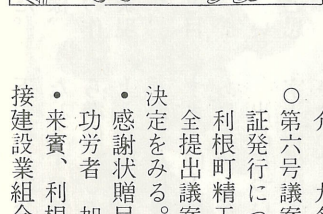 ○第六号議案
証発行につ
利根町精工
全提出議案
決定をみる。
・感謝状贈呈
功労者 加
・来賓、利根
接建設業組合